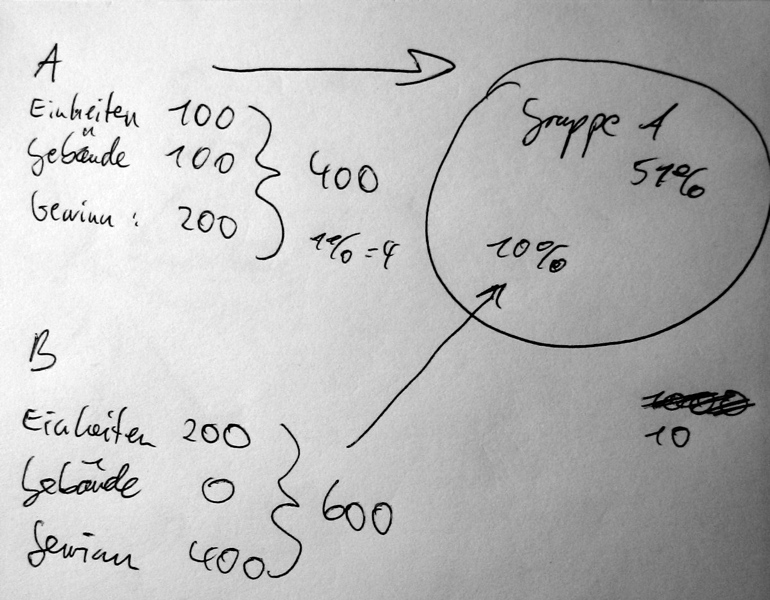 A
Einheiten 100
Gebäude 100
Gewinn : 200
400
1% = 4
Gruppe 1
51%
10%
B
Einheiten 200
Gebäude 0
Gewinn 400
600
10